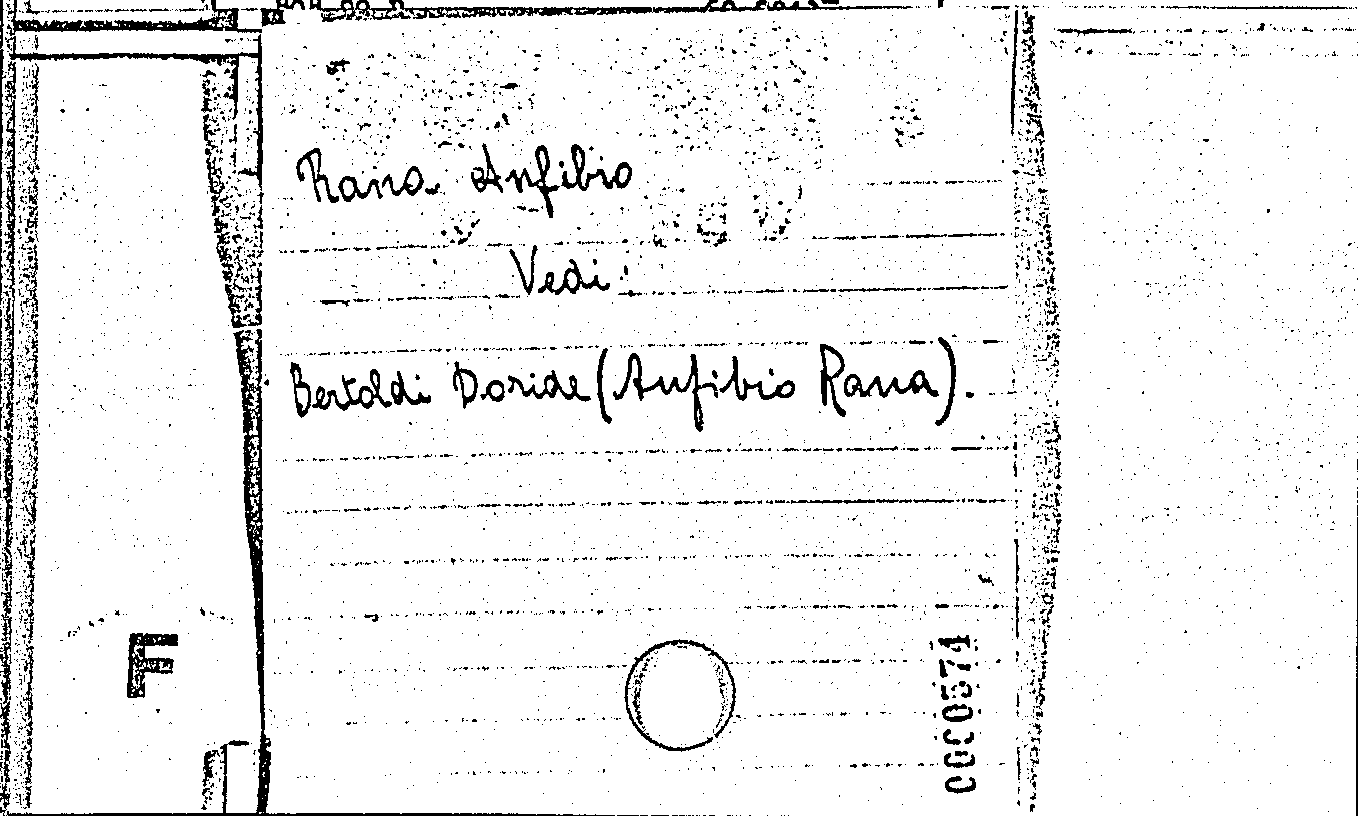 Rana Anfibio
Vedi:
Bertoldi Doride (Anfibio Rana).
F
0000574